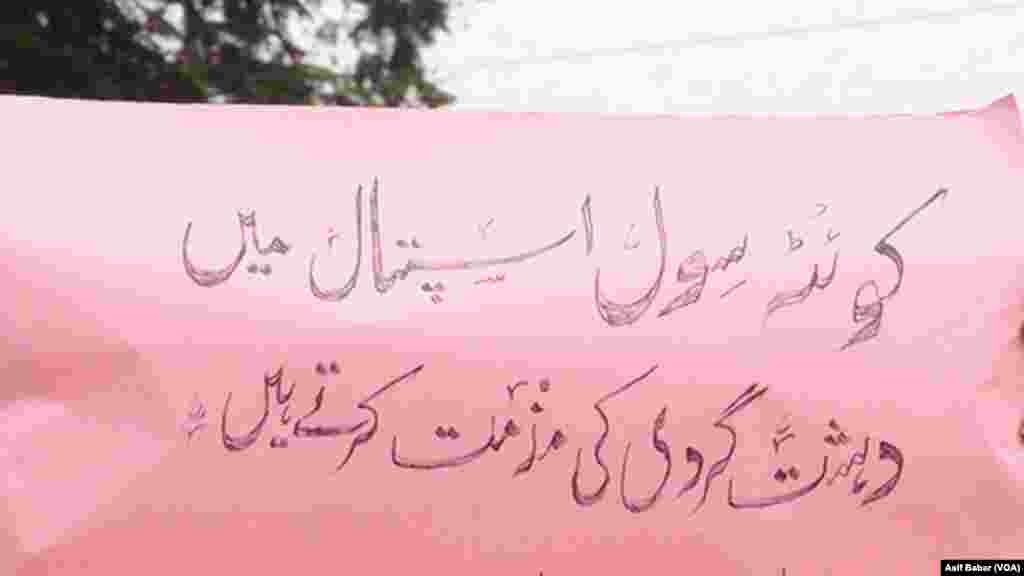 کوئٹہ سِول اسپتال میں
دہشت گردی کی مزمت کرتے ہیں
Asif Baber (VOA)